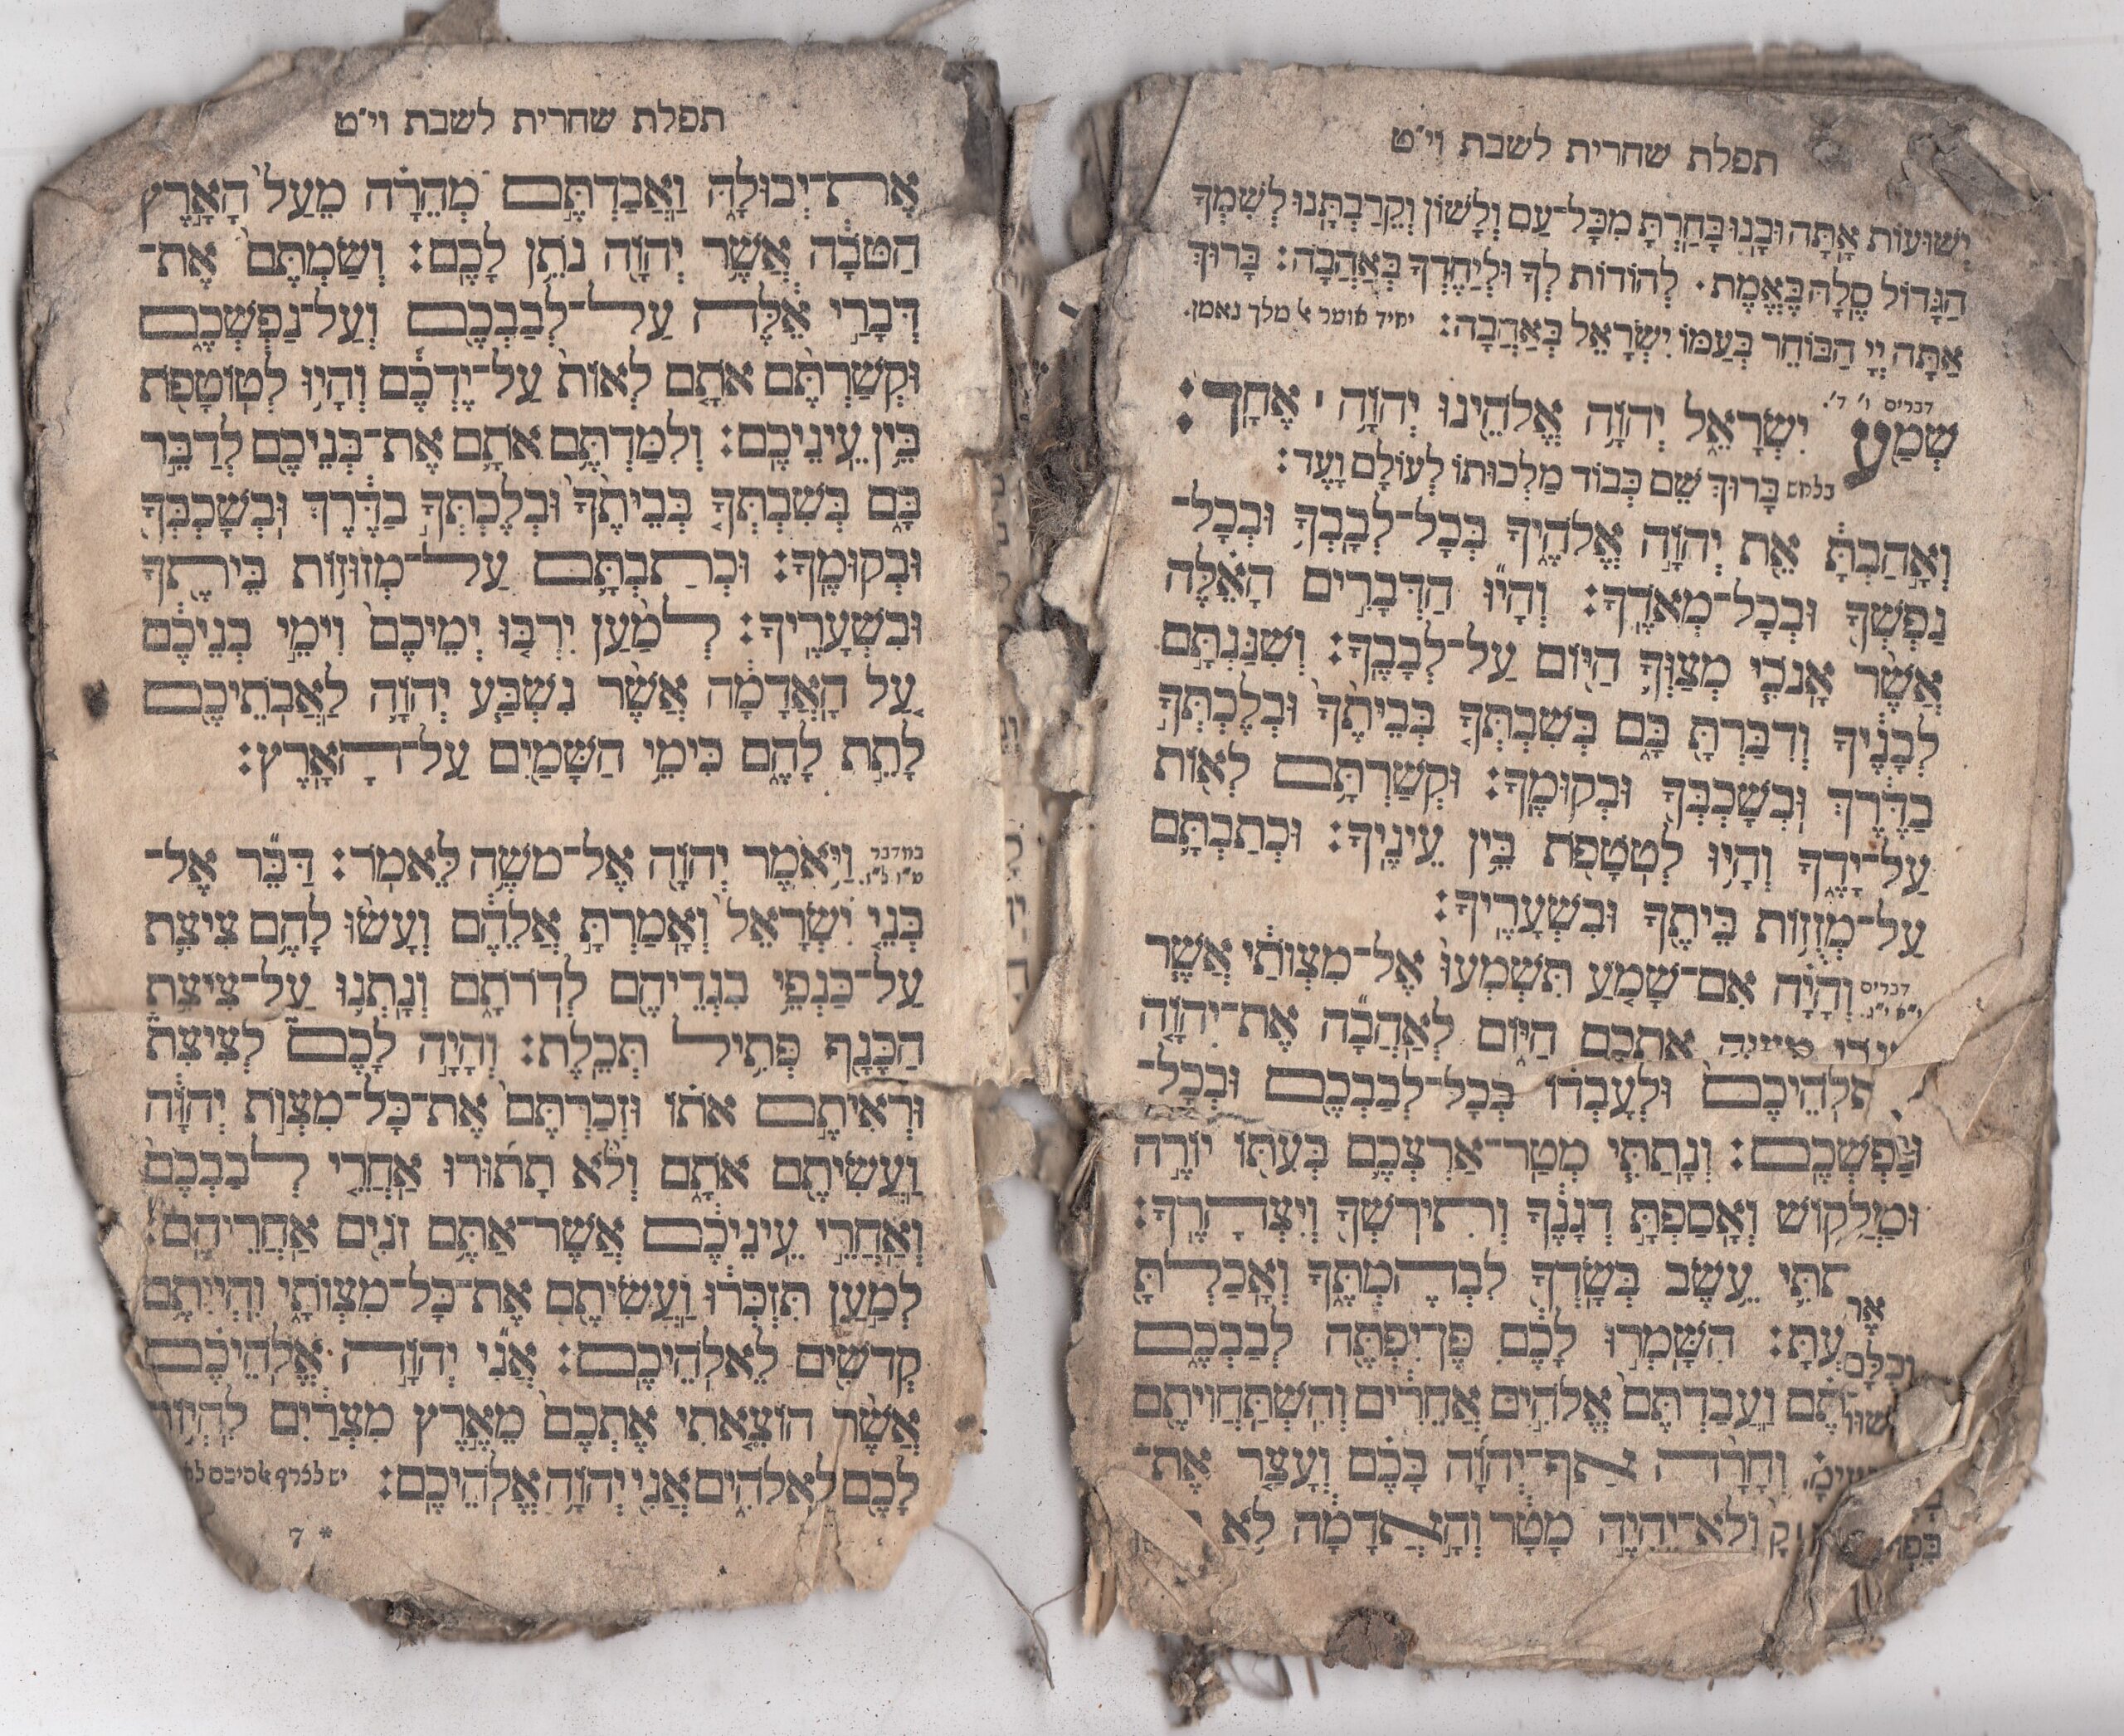 תפלת שחרית לשבת וי״ט
יְשׁוּעוֹת אָֽתָּה וּבָֽנוּ בָּחַֽרְתָּ מִכָּל־עַם וְלָשׁוֹן וְקֵרַבְתָּֽנוּ לְשִׁמְךָ
הַגָּדוֹל סֶֽלָה בֶּאֱמֶת. לְהוֹדוֹת לְךָ וּלְיַחֶדְךָ בְּאַהֲבָה: בָּרוּךְ
אַתָּה יְיָ הַבּוֹחֵר בְּעַמּוֹ יִשְׂרָאֵל בְּאַהֲבָה: יחיד אומר אל מלך נאמן.
דברים ו׳ ד׳.
שְׁמַ֖ע יִשְׂרָאֵ֑ל יְהוָֹ֥ה אֱלֹהֵ֖ינוּ יְהוָֹ֥ה ׀ אֶחָֽד:
בלחש בָּרוּךְ שֵׁם כְּבוֹד מַלְכוּתוֹ לְעוֹלָם וָעֶד:
וְאָ֣הַבְתָּ֔ אֵ֖ת יְהוָֹ֣ה אֱלֹהֶ֑יךָ בְּכָל־לְבָבְךָ֥ וּבְכָל־
נַפְשְׁךָ֖ וּבְכָל־מְאֹדֶֽךָ: וְהָי֞וּ הַדְּבָרִ֣ים הָאֵ֗לֶּה
אֲשֶׁ֨ר אָֽנֹכִ֧י מְצַוְּךָ֛ הַיּ֖וֹם עַל־לְבָבֶֽךָ: וְשִׁנַּנְתָּ֣ם
לְבָנֶ֔יךָ וְדִבַּרְתָּ֖ בָּ֑ם בְּשִׁבְתְּךָ֤ בְּבֵיתֶ֙ךָ֙ וּבְלֶכְתְּךָ֣
בַדֶּ֔רֶךְ וּֽבְשָׁכְבְּךָ֖ וּבְקוּמֶֽךָ: וּקְשַׁרְתָּ֥ם לְא֖וֹת
עַל־יָדֶ֑ךָ וְהָי֥וּ לְטֹטָפֹ֖ת בֵּ֥ין עֵינֶֽיךָ: וּכְתַבְתָּ֛ם
עַל־מְזֻז֥וֹת בֵּיתֶ֖ךָ וּבִשְׁעָרֶֽיךָ:
דברים י״א י״ג. וְהָיָ֗ה אִם־שָׁמֹ֤עַ תִּשְׁמְעוּ֙ אֶל־מִצְוֹתַ֔י אֲשֶׁ֧ר
אֶתְכֶ֖ם הַיּ֑וֹם לְאַהֲבָ֞ה אֶת־יְהוָֹ֤ה
אֱלֹֽהֵיכֶם֙ וּלְעָבְד֔וֹ בְּכָל־לְבַבְכֶ֖ם וּבְכָל־
נַפְשְׁכֶֽם: וְנָתַתִּ֧י מְטַֽר־אַרְצְכֶ֛ם בְּעִתּ֖וֹ יוֹרֶ֣ה
וּמַלְק֑וֹשׁ וְאָסַפְתָּ֣ דְגָנֶ֔ךָ וְתִֽירשְׁךָ֖ וְיִצְהָרֶֽךָ:
תַתִּ֛י עֵ֥שֶׂב בְּשָׂדְךָ֖ לִבְהֶמְתֶּ֑ךָ וְאָכַלְתָּ֖
עְתָּ: הִשָּׁמְר֣וּ לָכֶ֔ם פֶּן־יִפְתֶּ֖ה לְבַבְכֶ֑ם
תֶּ֗ם וַעֲבַדְתֶּם֙ אֱלֹהִ֣ים אֲחֵרִ֔ים וְהִשְׁתַּחֲוִיתֶ֖ם
וְחָרָ֨ה אַף־יְהוָֹ֜ה בָּכֶ֗ם וְעָצַ֤ר אֶת־
וְלֹא־יִהְיֶ֣ה מָטָ֔ר וְהָ֣אֲדָמָ֔ה לֹ֥א
תפלת שחרית לשבת וי״ט
אֶת־יְבוּלָ֑הּ וַאֲבַדְתֶּ֣ם מְהֵרָ֗ה מֵעַל֙ הָאָ֣רֶץ
הַטֹּבָ֔ה אֲשֶׁ֥ר יְהוָֹ֖ה נֹתֵ֥ן לָכֶֽם: וְשַׂמְתֶּם֙ אֶת־
דְּבָרַ֣י אֵ֔לֶּה עַל־לְבַבְכֶ֖ם וְעַל־נַפְשְׁכֶ֑ם
וּקְשַׁרְתֶּ֨ם אֹתָ֤ם לְאוֹת֙ עַל־יֶדְכֶ֔ם וְהָי֥וּ לְטוֹטָפֹ֖ת
בֵּ֥ין עֵינֵיכֶֽם: וְלִמַּדְתֶּ֥ם אֹתָ֛ם אֶת־בְּנֵיכֶ֖ם לְדַבֵּ֣ר
בָּ֑ם בְּשִׁבְתְּךָ֤ בְּבֵיתֶ֙ךָ֙ וּבְלֶכְתְּךָ֣ בַדֶּ֔רֶךְ וּֽבְשָׁכְבְּךָ֖
וּבְקוּמֶֽךָ: וּכְתַבְתָּ֛ם עַל־מְזוּז֥וֹת בֵּיתֶ֖ךָ
וּבִשְׁעָרֶֽיךָ: לְמַ֨עַן יִרְבּ֤וּ יְמֵיכֶם֙ וִימֵ֣י בְנֵיכֶ֔ם
עַ֚ל הָֽאֲדָמָ֔ה אֲשֶׁ֨ר נִשְׁבַּ֧ע יְהוָֹ֛ה לַאֲבֹֽתֵיכֶ֖ם
לָתֵ֣ת לָהֶ֑ם כִּימֵ֥י הַשָּׁמַ֖יִם עַל־הָאָֽרֶץ:
במדבר ט״ו ל״ז. וַיֹּ֥אמֶר יְהוָֹ֖ה אֶל־מֹשֶׁ֥ה לֵּאמֹֽר: דַּבֵּ֞ר אֶל־
בְּנֵ֤י יִשְׂרָאֵל֙ וְאָמַרְתָּ֣ אֲלֵהֶ֔ם וְעָשׂ֨וּ לָהֶ֥ם צִיצִ֛ת
עַל־כַּנְפֵ֥י בִגְדֵיהֶ֖ם לְדֹרֹתָ֑ם וְנָֽתְנ֛וּ עַל־צִיצִ֥ת
הַכָּנָ֖ף פְּתִ֥יל תְּכֵֽלֶת: וְהָיָ֣ה לָכֶם֮ לְצִיצִת֒
וּרְאִיתֶ֣ם אֹת֗וֹ וּזְכַרְתֶּם֙ אֶת־כָּל־מִצְוֹ֣ת יְהוָֹ֔ה
וַעֲשִׂיתֶ֖ם אֹתָ֑ם וְלֹ֨א תָת֜וּרוּ אַחֲרֵ֤י לְבַבְכֶם֙
וְאַחֲרֵ֣י עֵֽינֵיכֶ֔ם אֲשֶׁר־אַתֶּ֥ם זֹנִ֖ים אַחֲרֵיהֶֽם:
לְמַ֣עַן תִּזְכְּר֔וּ וַעֲשִׂיתֶ֖ם אֶת־כָּל־מִצְוֹתָ֑י וִהְיִיתֶ֥ם
קְדֹשִׁ֖ים לֵאלֹֽהֵיכֶֽם: אֲנִ֞י יְהוָֹ֣ה אֱלֹֽהֵיכֶ֗ם
אֲשֶׁ֨ר הוֹצֵ֤אתִי אֶתְכֶם֙ מֵאֶ֣רֶץ מִצְרַ֔יִם לִהְי֥וֹת
לָכֶ֖ם לֵאלֹהִ֑ים אֲנִ֖י יְהוָֹ֥ה אֱלֹהֵיכֶֽם: יש לצרף
* 7